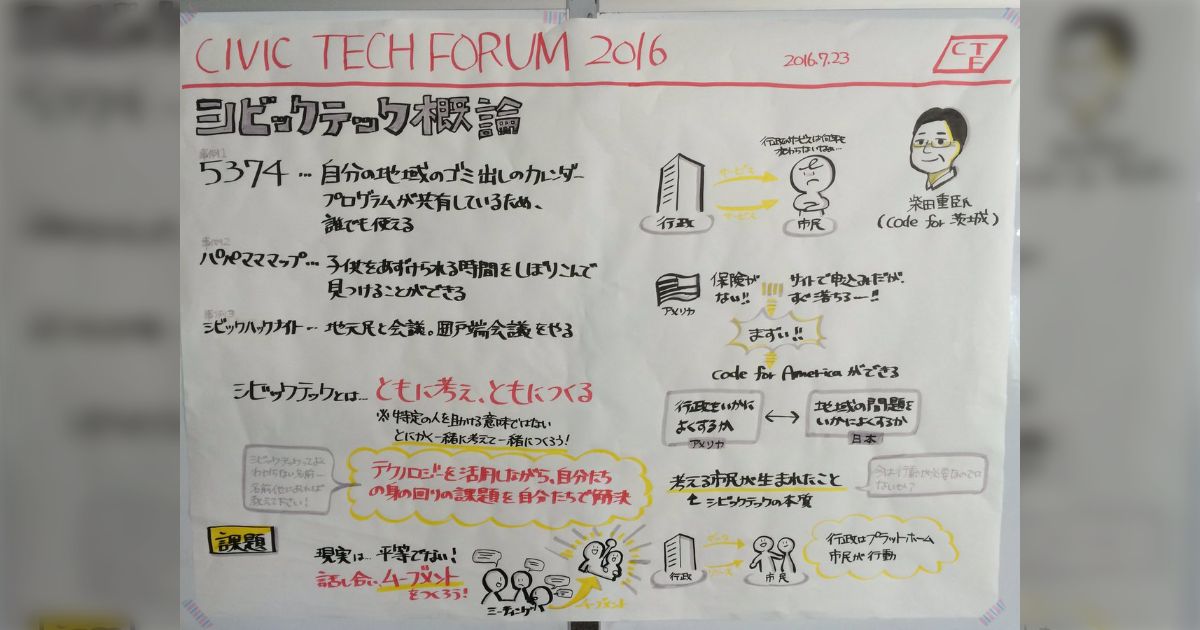 CIVIC TECH FORUM 2016
2016.7.23
CTF
シビックテック概論
事例1
5374 … 自分の地域のゴミ出しのカレンダー
プログラムが共有しているため、
誰でも使える
事例2
パパママママップ… 子供をあずけられる時間をしぼりこんで
見つけることができる
事例3
シビックハックナイト… 地元民と会議。井戸端会議をやる
シビックテックとは… ともに考え、ともにつくる
※特定の人を助ける意味ではない
とにかく一緒に考えて一緒につくろう!
シビックテックってよく
わからない名前…
名前他にあれば
教えて下さい!
テクノロジーを活用しながら、自分たち
の身の回りの課題を自分たちで解決
課題
現実は… 平等でない!
話し合い、ムーブメント
をつくろう!
ミーティング
ムーブメント
行政のサービスは何年も
変わらないなぁ…
サービス
サービス
行政
市民
柴田重臣氏
(Code for 茨城)
アメリカ
保険が
ない!!
サイトで申込みだが、
すぐ落ちるー!!
まずい!!
Code for Americaができる
行政をいかに
よくするか
アメリカ
地域の問題を
いかによくするか
日本
考える市民が生まれたこと
シビックテックの本質
今は行動が必要なのでは
ないか?
行政
市民
行政はプラットホーム
市民が行動